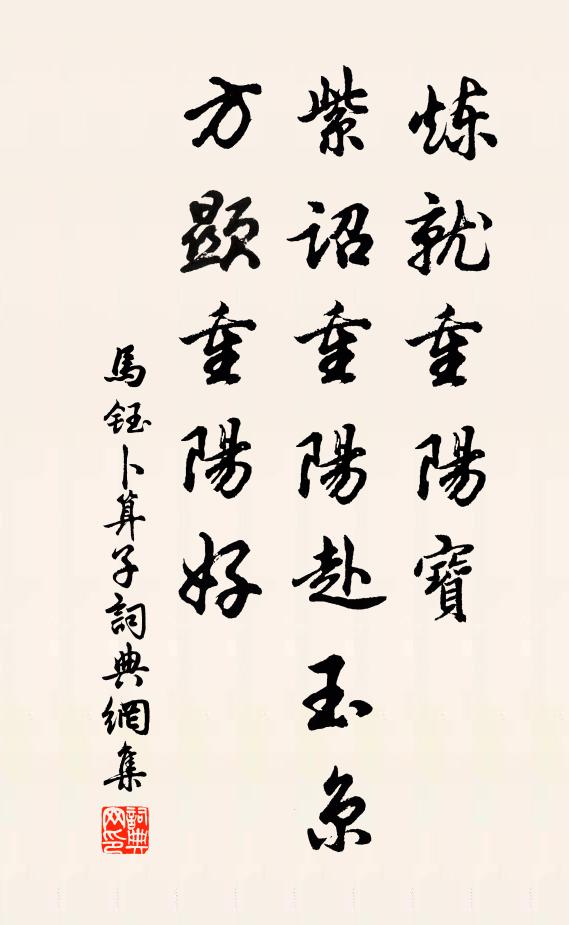 炼就重陽寶
紫詔重陽赴玉京
方顯重陽好
馬鈺卜算子詞典網集
詞典網印